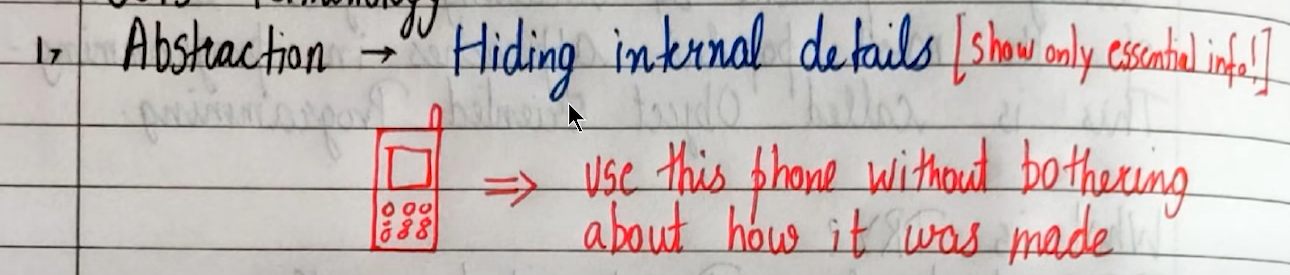 1, Abstraction → Hiding internal details [show only essential info!]
⇒ use this phone without bothering
about how it was made